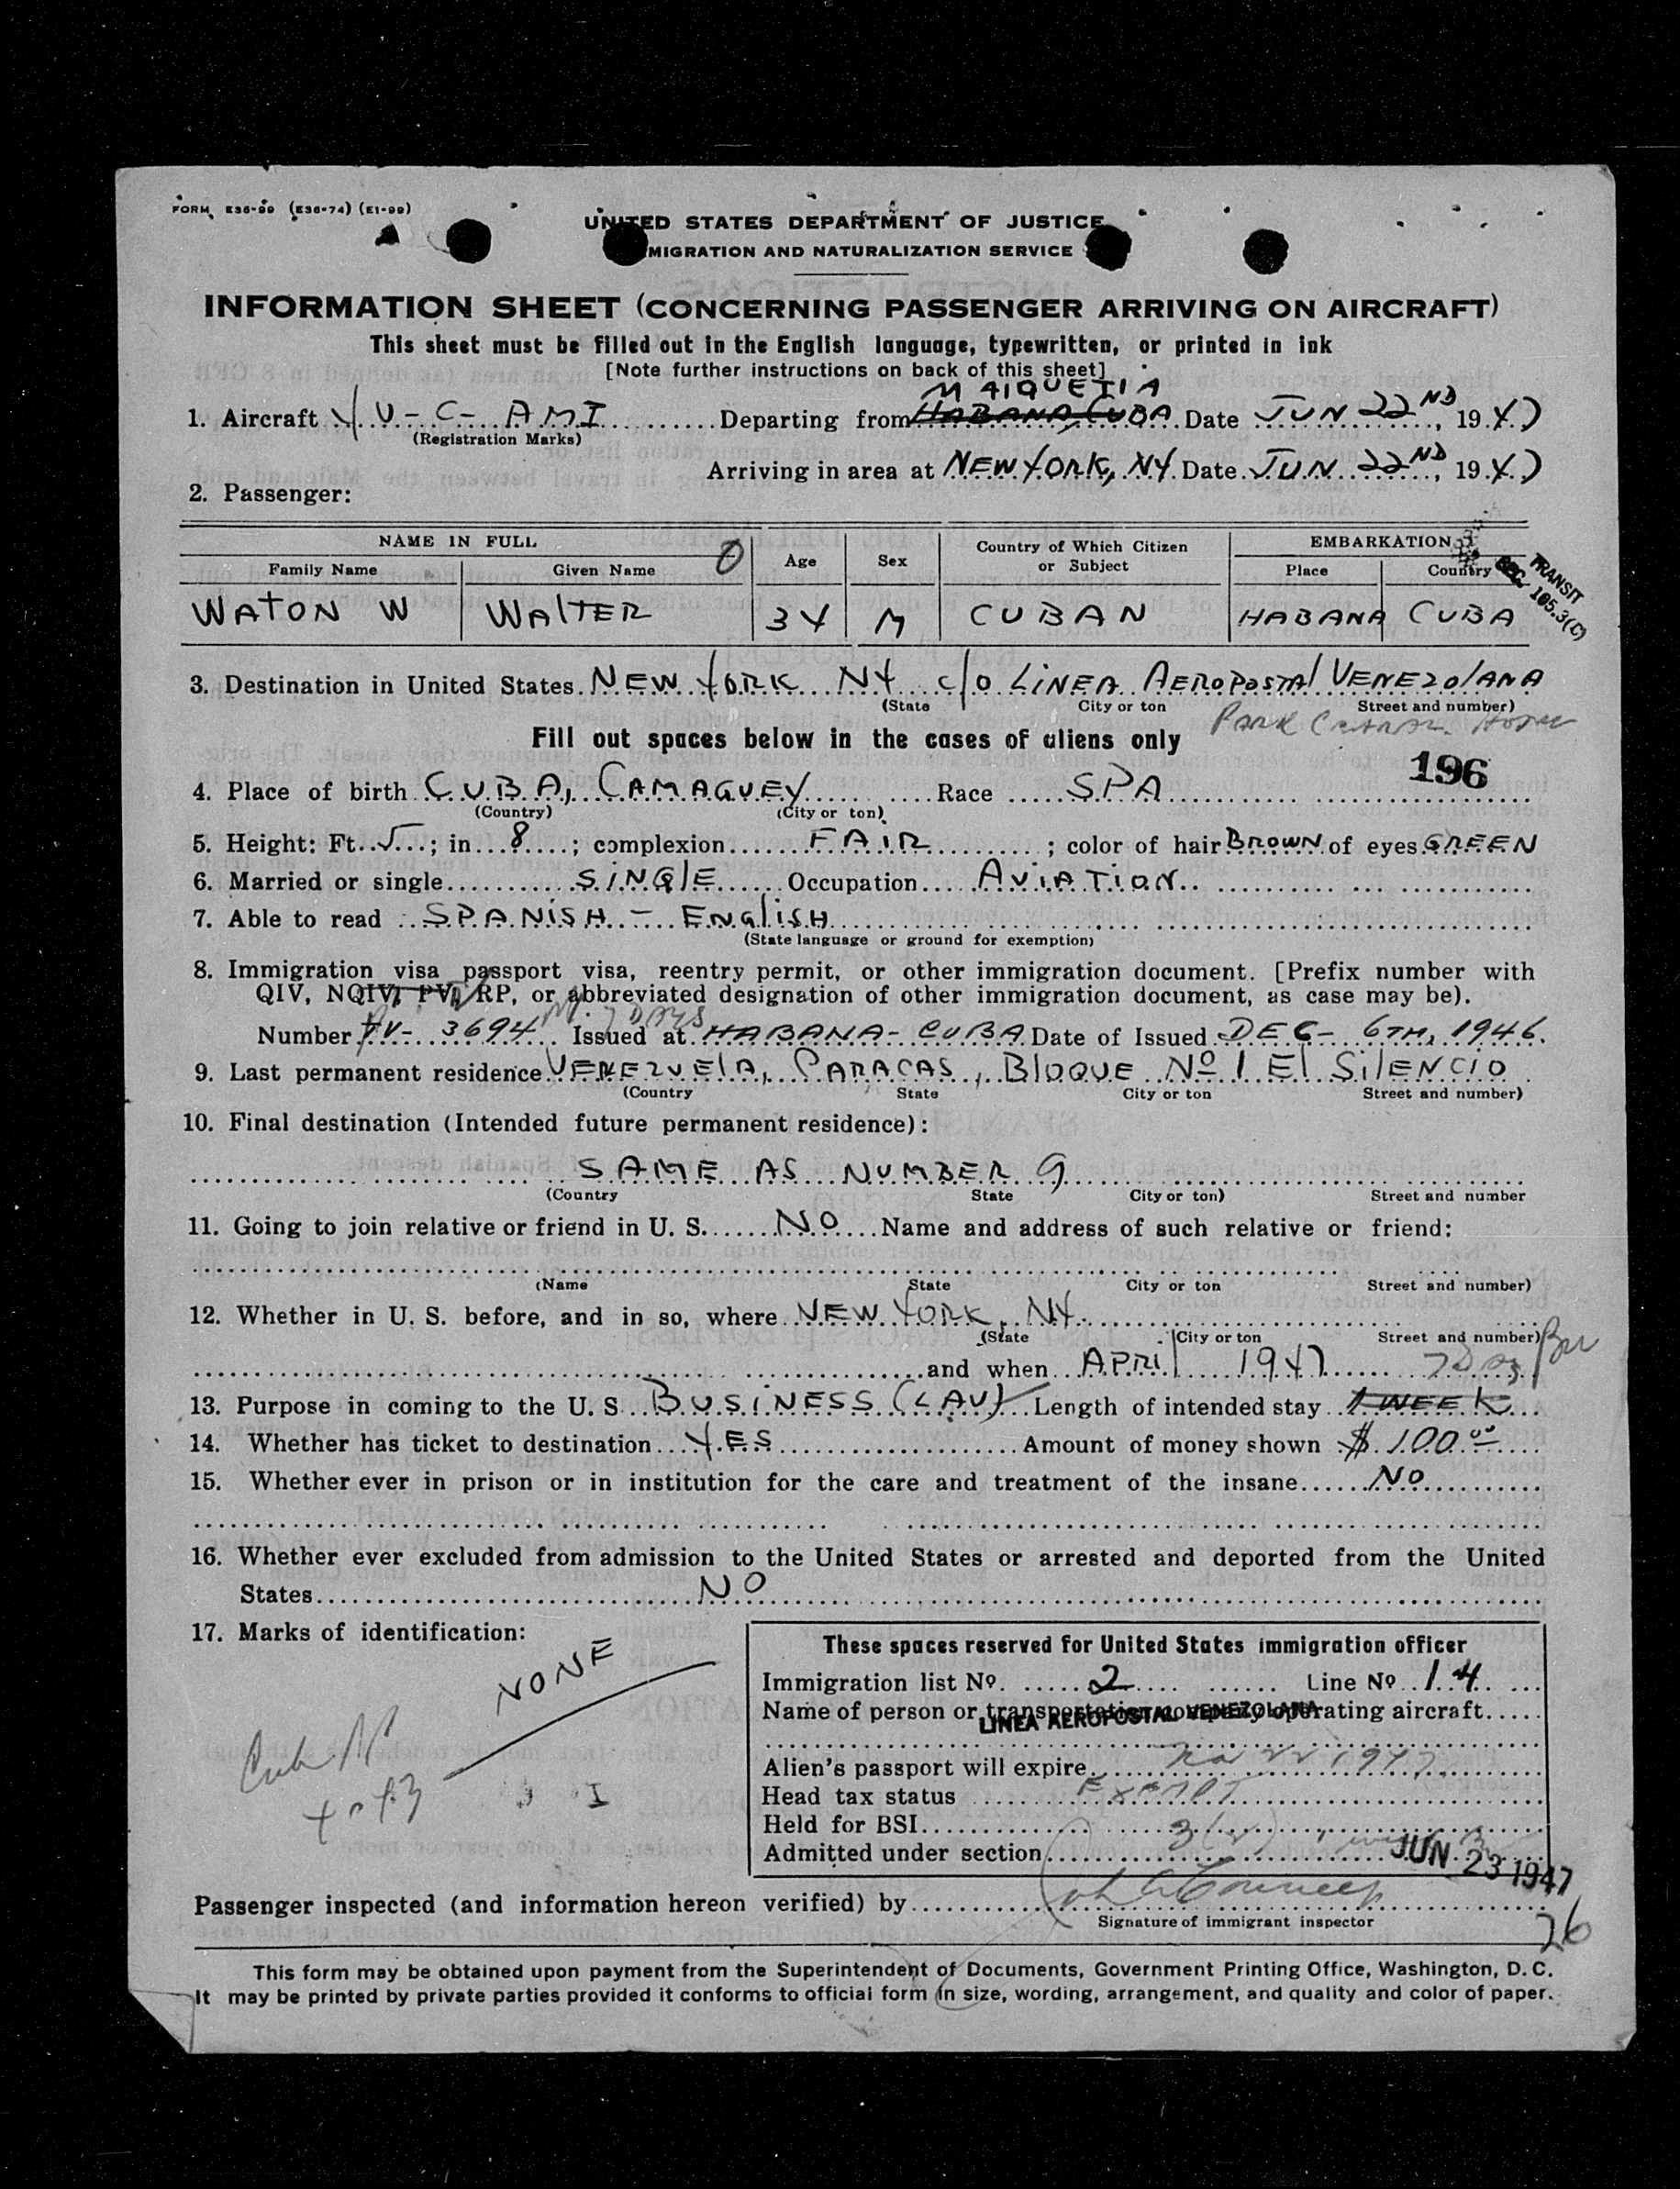 FORM E36-99 (E36-74) (E1-99)
UNITED STATES DEPARTMENT OF JUSTICE
MIGRATION AND NATURALIZATION SERVICE
INFORMATION SHEET (CONCERNING PASSENGER ARRIVING ON AIRCRAFT)
This sheet must be filled out in the English language, typewritten, or printed in ink
[Note further instructions on back of this sheet]
MAIQUETIA
1. Aircraft YV-C-AMI Departing from HABANA, CUBA Date JUN 22ND, 1947
(Registration Marks)
Arriving in area at NEW YORK, NY Date JUN 22ND, 1947
2. Passenger:
NAME IN FULL Age Sex Country of Which Citizen or Subject EMBARKATION
Family Name Given Name Place Country
TRANSIT
SEC. 105.3(C)
WATON W WALTER 34 M CUBAN HABANA CUBA
3. Destination in United States NEW YORK NY c/o LINEA AEROPOSTAL VENEZOLANA
(State City or ton Street and number)
PARK CENTRAL HOTEL
Fill out spaces below in the cases of aliens only
196
4. Place of birth CUBA, CAMAGUEY Race SPA
(Country) (City or ton)
5. Height: Ft. 5; in 8; complexion FAIR; color of hair BROWN of eyes GREEN
6. Married or single SINGLE Occupation AVIATION
7. Able to read SPANISH - ENGLISH
(State language or ground for exemption)
8. Immigration visa passport visa, reentry permit, or other immigration document. [Prefix number with
QIV, NQIV, PV, RP, or abbreviated designation of other immigration document, as case may be).
7 DAYS
Number PV- 3694 Issued at HABANA- CUBA Date of Issued DEC- 6TH, 1946.
9. Last permanent residence VENEZUELA, CARACAS, BLOQUE Nº 1 El SILENCIO
(Country State City or ton Street and number)
10. Final destination (Intended future permanent residence):
SAME AS NUMBER 9
(Country State City or ton) Street and number
11. Going to join relative or friend in U. S. NO Name and address of such relative or friend:
(Name State City or ton Street and number)
12. Whether in U. S. before, and in so, where NEW YORK, NY.
(State City or ton Street and number)
and when APRIL 1947 7 Days
13. Purpose in coming to the U. S BUSINESS (LAV) Length of intended stay 1 WEEK
14. Whether has ticket to destination YES Amount of money shown $ 100.00
15. Whether ever in prison or in institution for the care and treatment of the insane NO
16. Whether ever excluded from admission to the United States or arrested and deported from the United
States NO
17. Marks of identification:
NONE
These spaces reserved for United States immigration officer
Immigration list Nº. 2 Line Nº 14
Name of person or transportation company operating aircraft
LINEA AEROPOSTAL VENEZOLANA
Alien's passport will expire 1947
Head tax status EXEMPT
Held for BSI
Admitted under section 3(2)
JUN 23 1947
Passenger inspected (and information hereon verified) by
Signature of immigrant inspector
26
This form may be obtained upon payment from the Superintendent of Documents, Government Printing Office, Washington, D. C.
It may be printed by private parties provided it conforms to official form in size, wording, arrangement, and quality and color of paper.